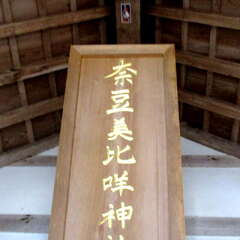 奈豆美比咩神社